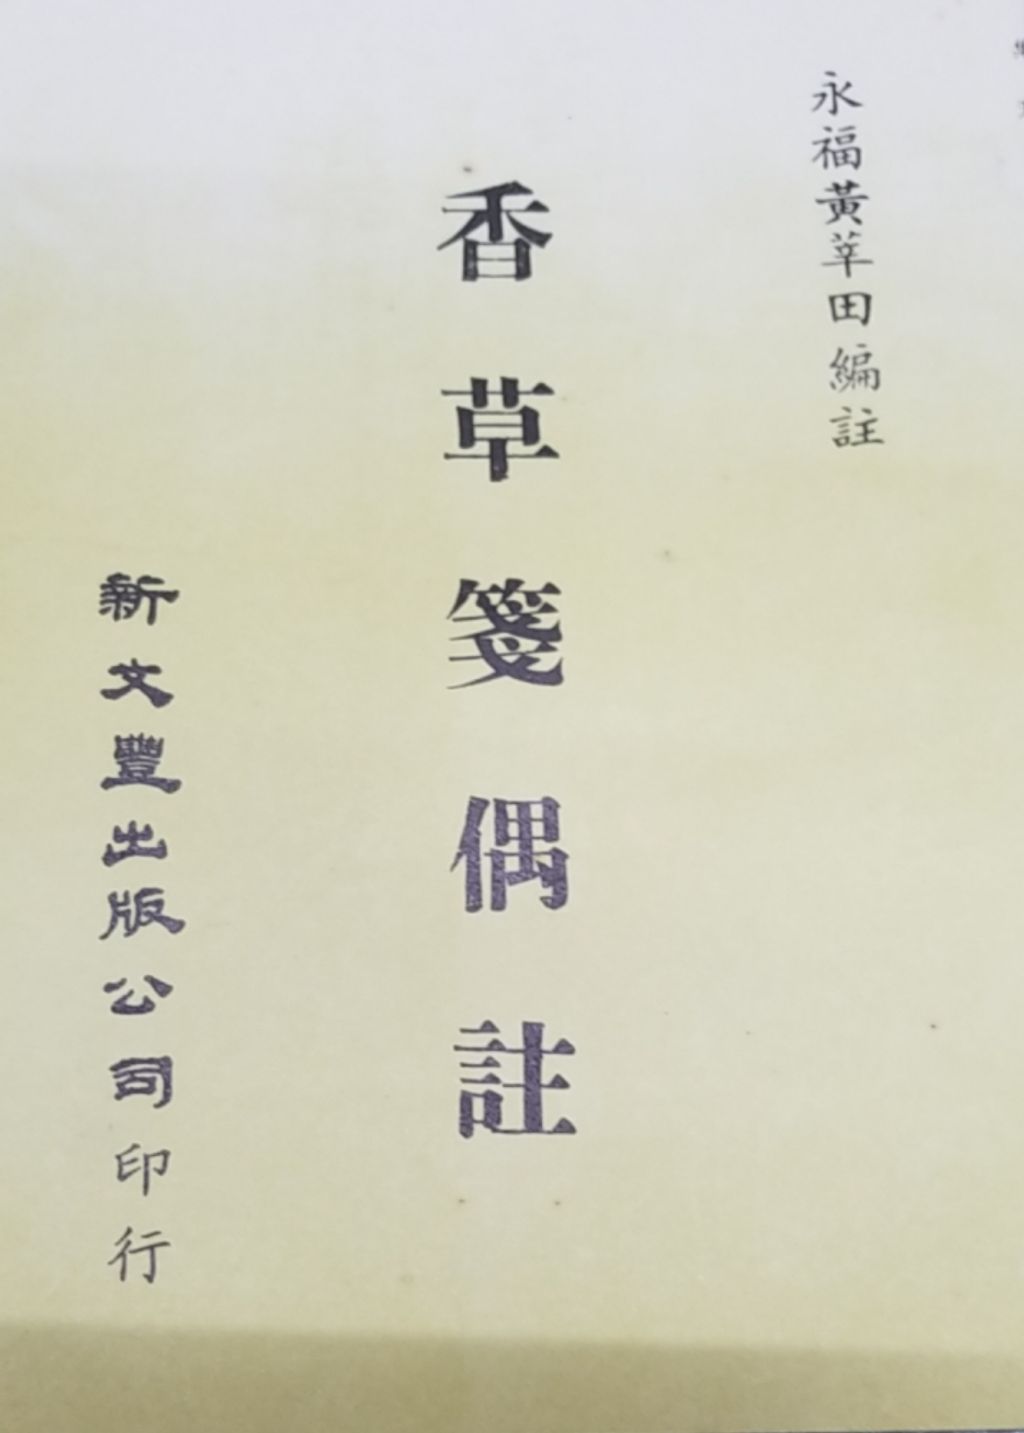 永福黃莘田編註
香草箋偶註
新文豐出版公司印行